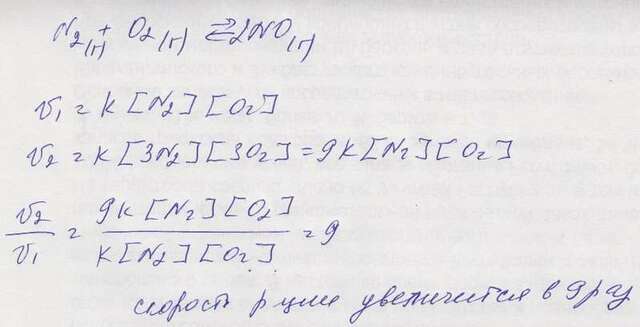 N₂(г) + O₂(г) ⇄ 2NO(г)
υ₁ = K[N₂][O₂]
υ₂ = K[3N₂][3O₂] = 9K[N₂][O₂]
υ₂/υ₁ = 9K[N₂][O₂]/K[N₂][O₂] = 9
скорость р ции увеличится в 9 раз